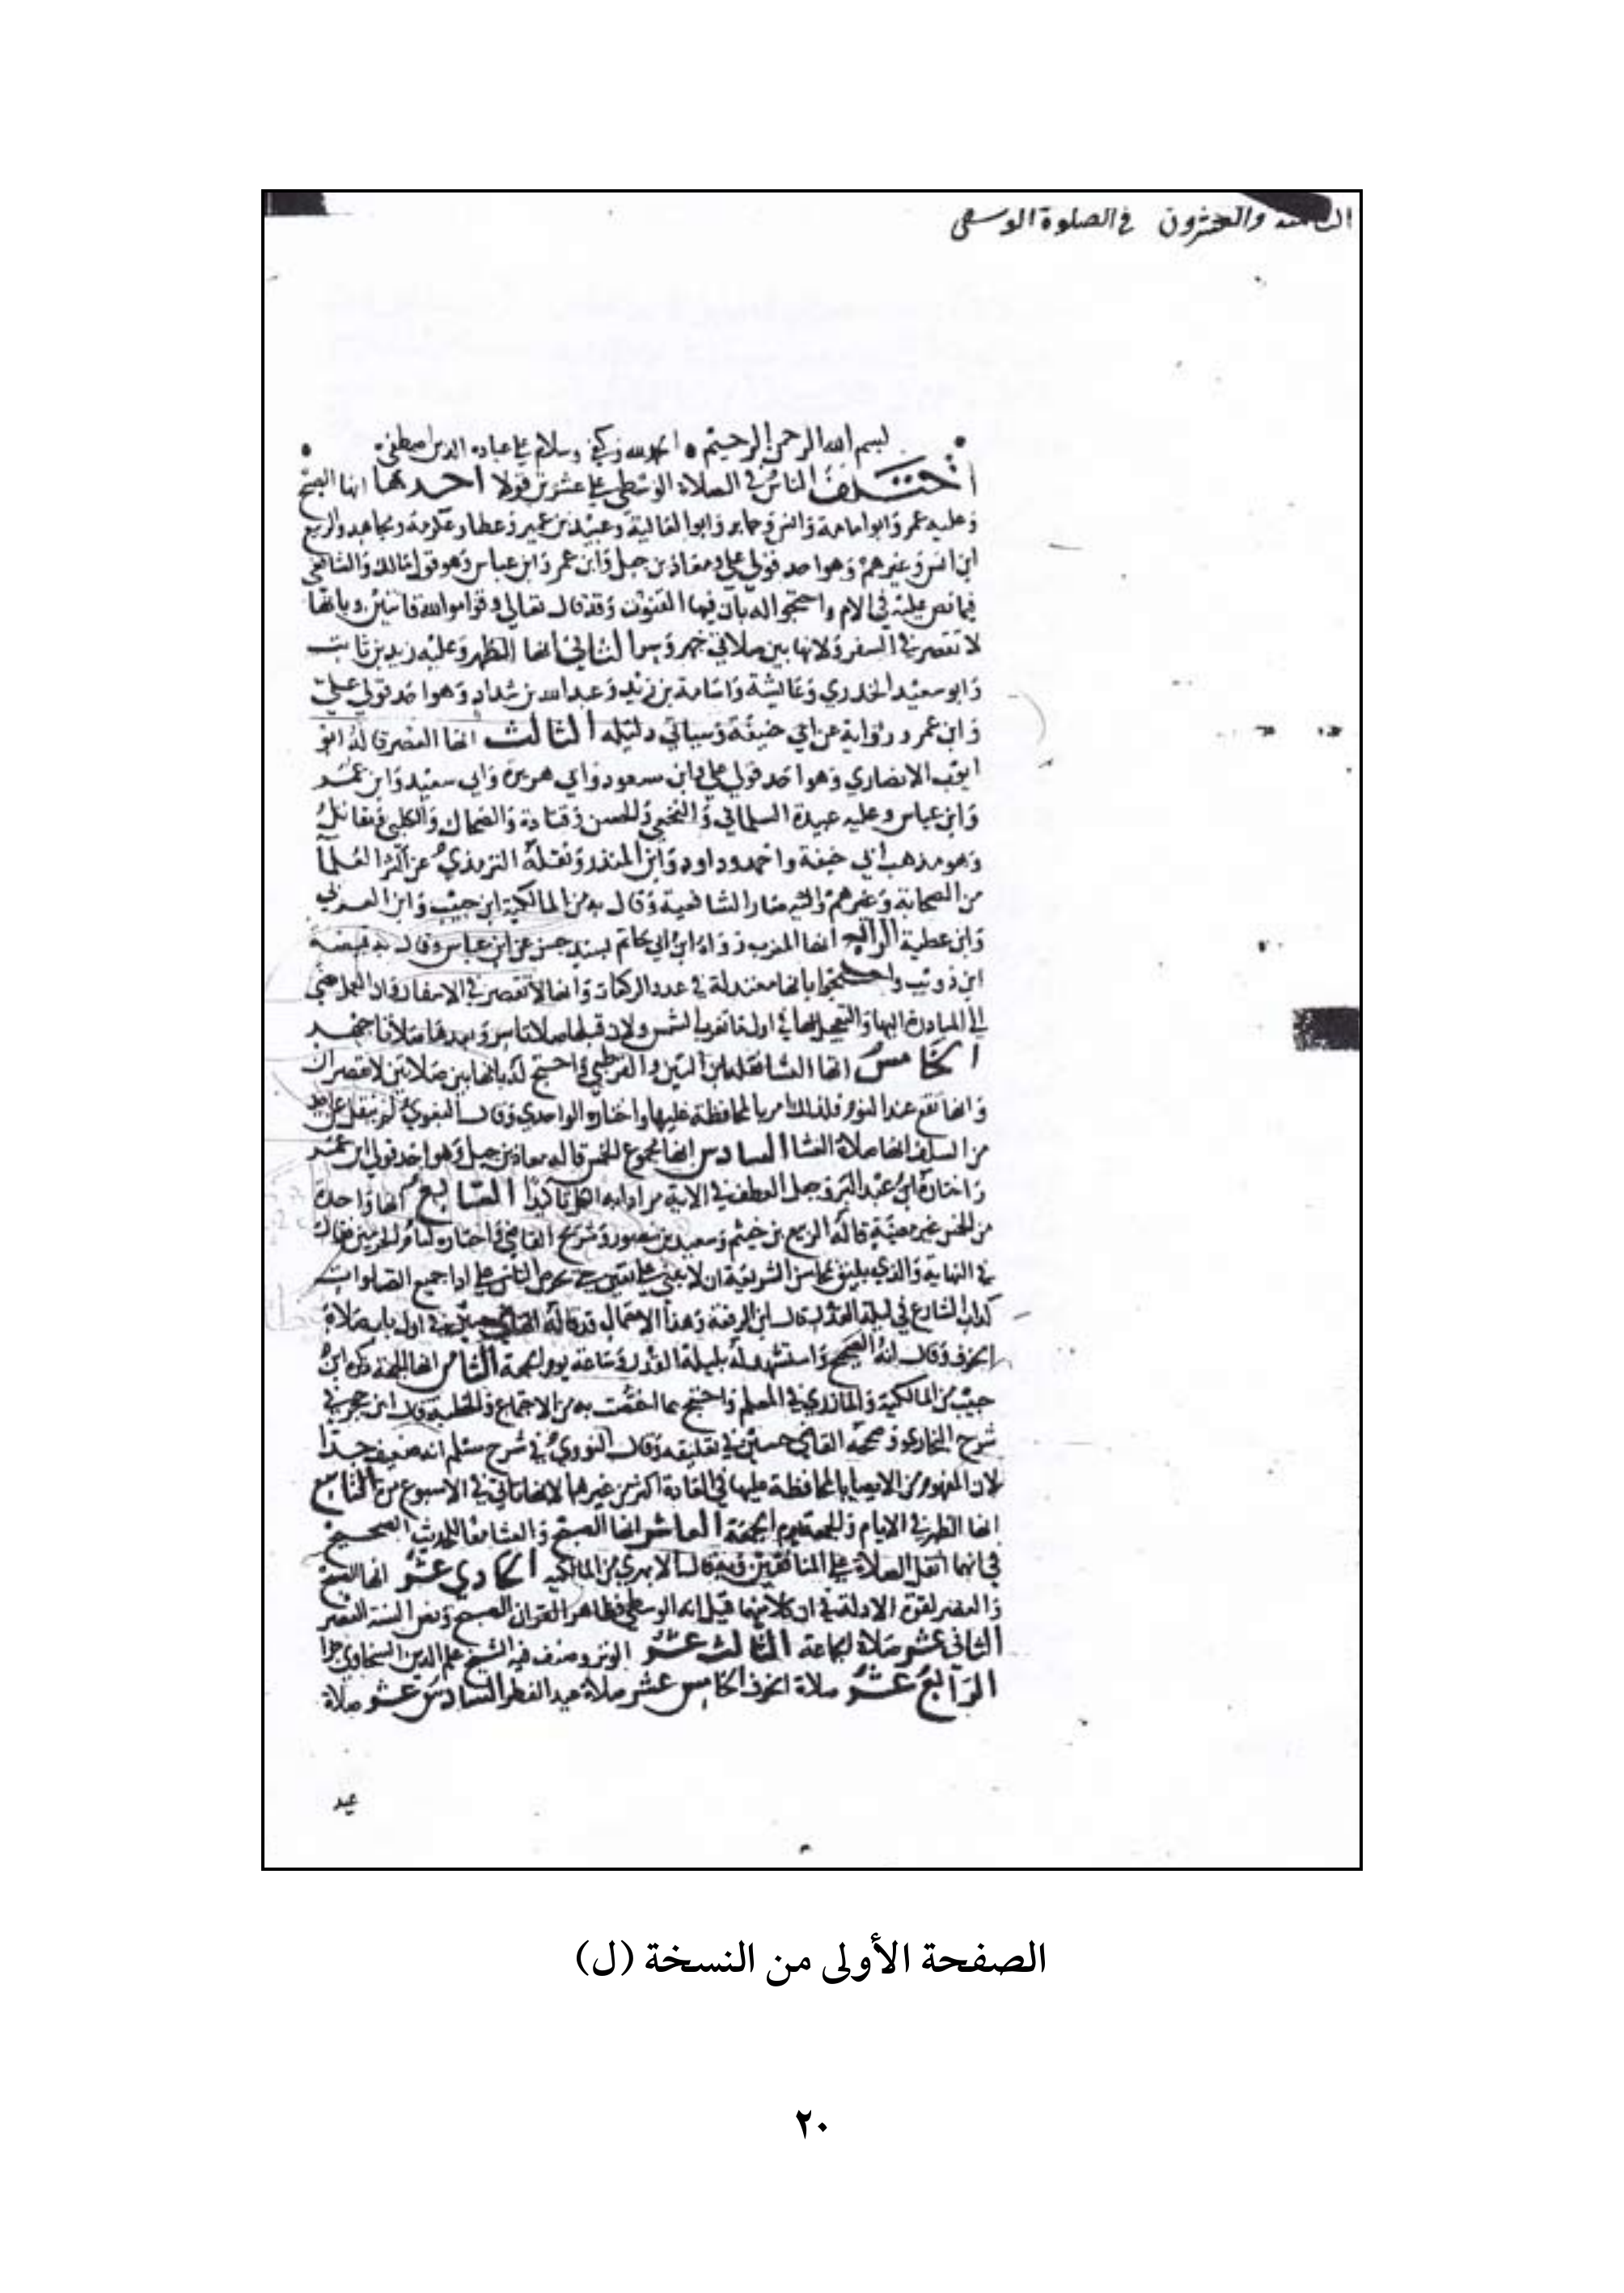 والعشرون في الصلوة الوسطى
بسم الله الرحمن الرحيم الحمد لله وكفى وسلام على عباده الذين اصطفى
اختلف الناس في الصلاة الوسطى على عشرين قولا احدها انها الصبح
وعليه عمر وابو امامة وانس وجابر وابو العالية وعبيد بن عمير وعطا وعكرمة ومجاهد والربيع
ابن انس وغيرهم وهو احد قولي علي ومعاذ بن جبل وابن عمر وابن عباس وهو قول مالك والشافعي
فيما نص عليه في الام واحتجوا له بان فيها القنوت وقد قال تعالى وقوموا لله قانتين وبانها
لا تقصر في السفر ولانها بين صلاتي جهر وسر الثاني انها الظهر وعليه زيد بن ثابت
وابو سعيد الخدري وعايشة واسامة بن زيد وعبد الله بن شداد وهو احد قولي علي
وابن عمر ورواية عن ابي حنيفة وسياتي دليله الثالث انها العصر قاله ابو
ايوب الانصاري وهو احد قولي علي وابن مسعود وابي هريرة وابي سعيد وابن عمر
وابن عباس وعليه عبيدة السلماني والنخعي والحسن وقتادة والضحاك والكلبي ومقاتل
وهو مذهب ابي حنيفة واحمد وداود وابن المنذر ونقله الترمذي عن اكثر العلما
من الصحابة وغيرهم واليه صار الشافعية وقال به من المالكية ابن حبيب وابن العربي
وابن عطية الرابع انها المغرب رواه ابن ابي حاتم بسند حسن عن ابن عباس وقال به قبيصة
ابن ذويب واحتجوا بانها معتدلة في عدد الركعات وانها لا تقصر في الاسفار وان العمل مضى
الى المبادرة اليها والتعجيل لها في اول ما تغرب الشمس ولان قبلها صلاتا سر وبعدها صلاتا جهر
الخامس انها العشا نقله ابن التين والقرطبي واحتج له بانها بين صلاتين لا تقصران
وانها تقع عند النوم فلذلك امر بالمحافظة عليها واختاره الواحدي وقال البغوي لم ينقل عن احد
من السلف انها صلاة العشا السادس انها مجموع الخمس قاله معاذ بن جبل وهو احد قولي ابن عمر
واختاره ابن عبد البر وجعل العطف في الاية مرادا به الكل تاكيدا السابع انها واحدة
من الخمس غير معينة قاله الربيع بن خيثم وسعيد بن وشريح القاضي واختاره امام الحرمين فقال
في النهاية والذي يليق بمحاسن الشريعة ان لا على يقين حتى يحرص الناس على ادا جميع الصلوات
كداب الشارع في ليلة القدر قال ابن الرفعة وهذا الاحتمال قد قاله القاضي حسين في اول باب صلاة
الخوف وقال انه الصحيح واستشهد له بليلة القدر وساعة يوم الجمعة الثامن انها الجمعة ذكره ابن
حبيب من المالكية والمازري في المعلم واحتج بما اختصت به من الاجتماع والخطبة وقال ابن حجر في
شرح البخاري وصححه القاضي حسين في تعليقه وقال النووي في شرح مسلم انه ضعيف جدا
لان المفهوم من الايصا بالمحافظة عليها في العادة اكثر من غيرها لانها تاتي في الاسبوع مرة التاسع
انها الظهر في الايام والجمعة يوم الجمعة العاشر انها الصبح والعشا معا للحديث الصحيح
في انهما اثقل الصلاة على المنافقين وبه قال الابهري من المالكية الحادي عشر انها الصبح
والعصر لقوة الادلة في ان كلا منهما قيل انه الوسطى فظاهر القران الصبح ونص السنة العصر
الثاني عشر صلاة الجماعة الثالث عشر الوتر وصنف فيه الشيخ علم الدين السخاوي جزا
الرابع عشر صلاة الخوف الخامس عشر صلاة عيد الفطر السادس عشر صلاة
عيد
الصفحة الأولى من النسخة (ل)
٢٠